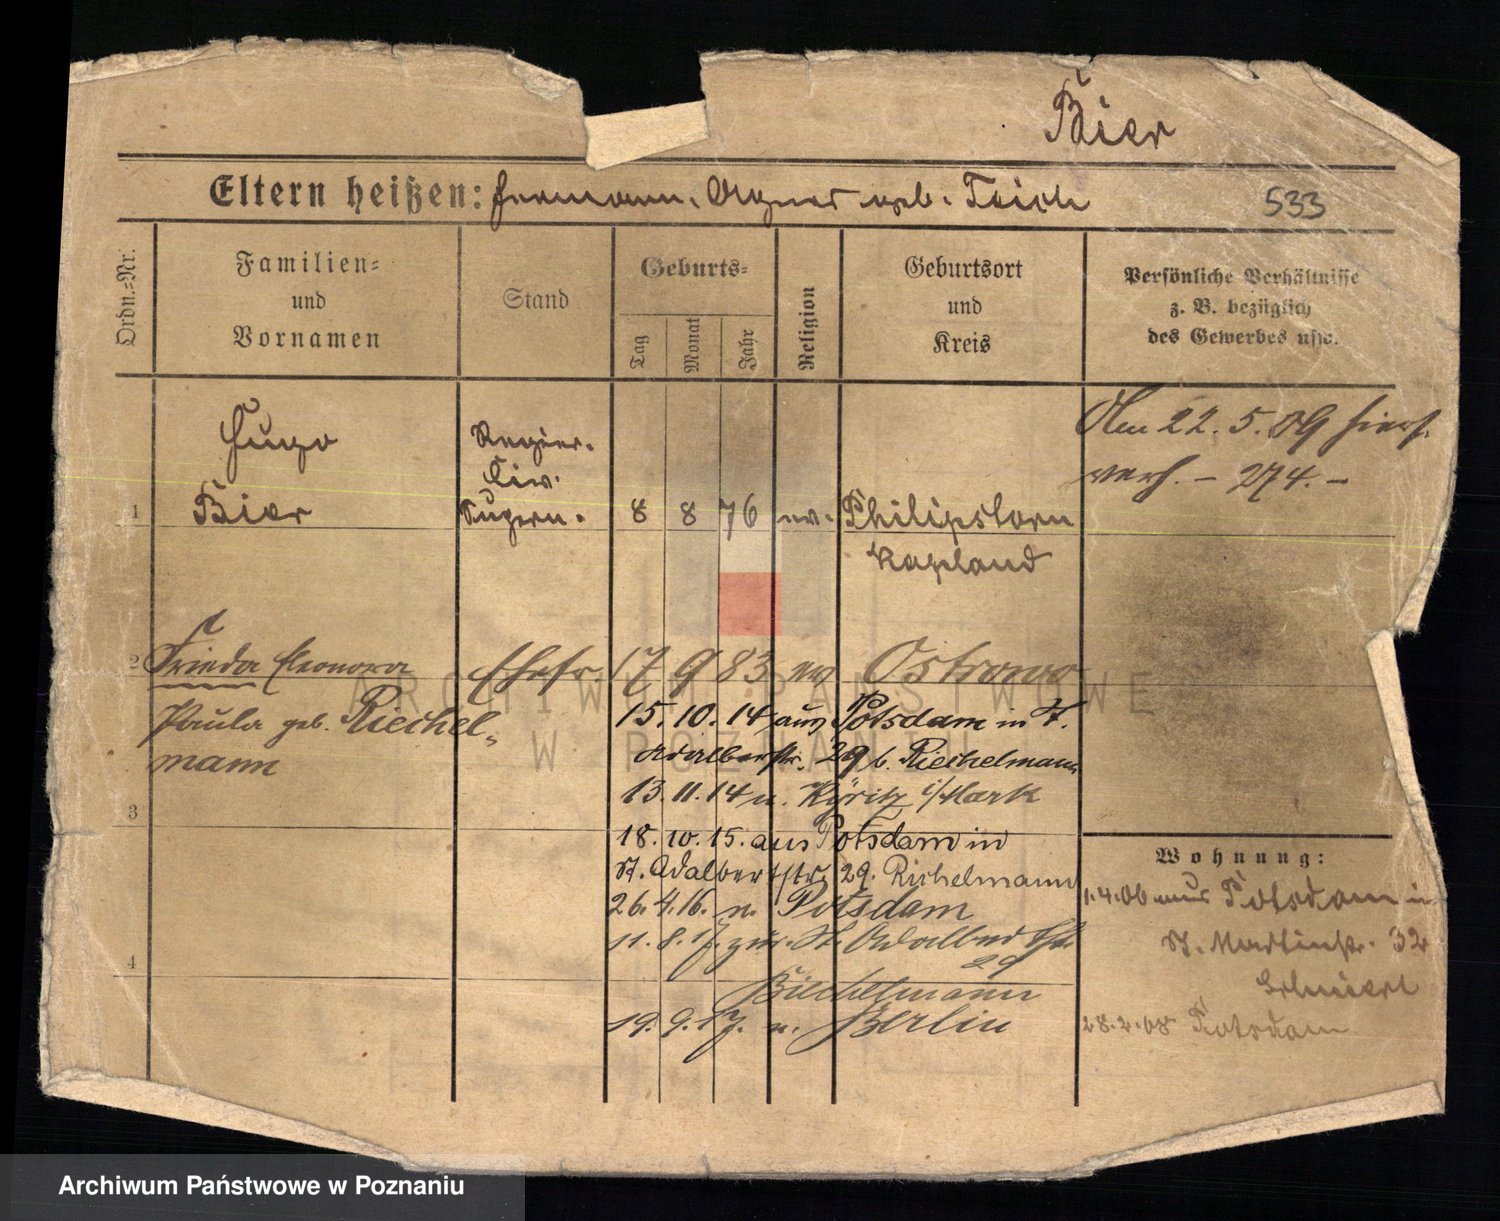 Bier
Eltern heißen: Hermann, Agnes geb. Teich
533
Ordn.=Nr.
Familien=
und
Vornamen
Stand
Geburts=
Tag
Monat
Jahr
Religion
Geburtsort
und
Kreis
Persönliche Verhältnisse
z. B. bezüglich
des Gewerbes usw.
Hugo
Bier
Regier.
Supern.
1
8 8 76 ev. Philipstown
Kapland
Am 22.5.09 hiers.
verh. - 274. -
2 Frieda Eleonora
Paula geb. Riechel-
mann
Ehefr. 17 9 83 ev Ostrowo
15. 10. 14 aus Potsdam in St.
Adalbertstr. 29 b. Riechelmann
13. 11. 14 n. Kyritz i/Mark
3
18. 10. 15. aus Potsdam in
St. Adalbertstr. 29. Richelmann
26. 4. 16. n. Potsdam
11. 8. 17. zur. St. Adalbertstr.
29
4
Riechelmann
19. 9. 17. n. Berlin
Wohnung:
1.4.06 aus Potsdam in
St. Martinstr. 32
28.2.08 Potsdam
ARCHIWUM PAŃSTWOWE
W POZNANIU
Archiwum Państwowe w Poznaniu